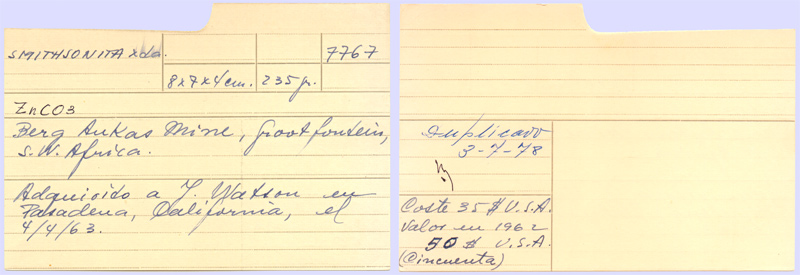 SMITHSONITA xda.
7767
8x7x4cm. 235 gr.
ZnCO3
Berg Aukas Mine, Grootfontein,
S.W. Africa.
Adquirido a J. Watson en
Pasadena, California, el
4/4/63.
Duplicado
3-7-78
Coste 35 $ U.S.A.
Valor en 1962
50 $ U.S.A.
(Cincuenta)